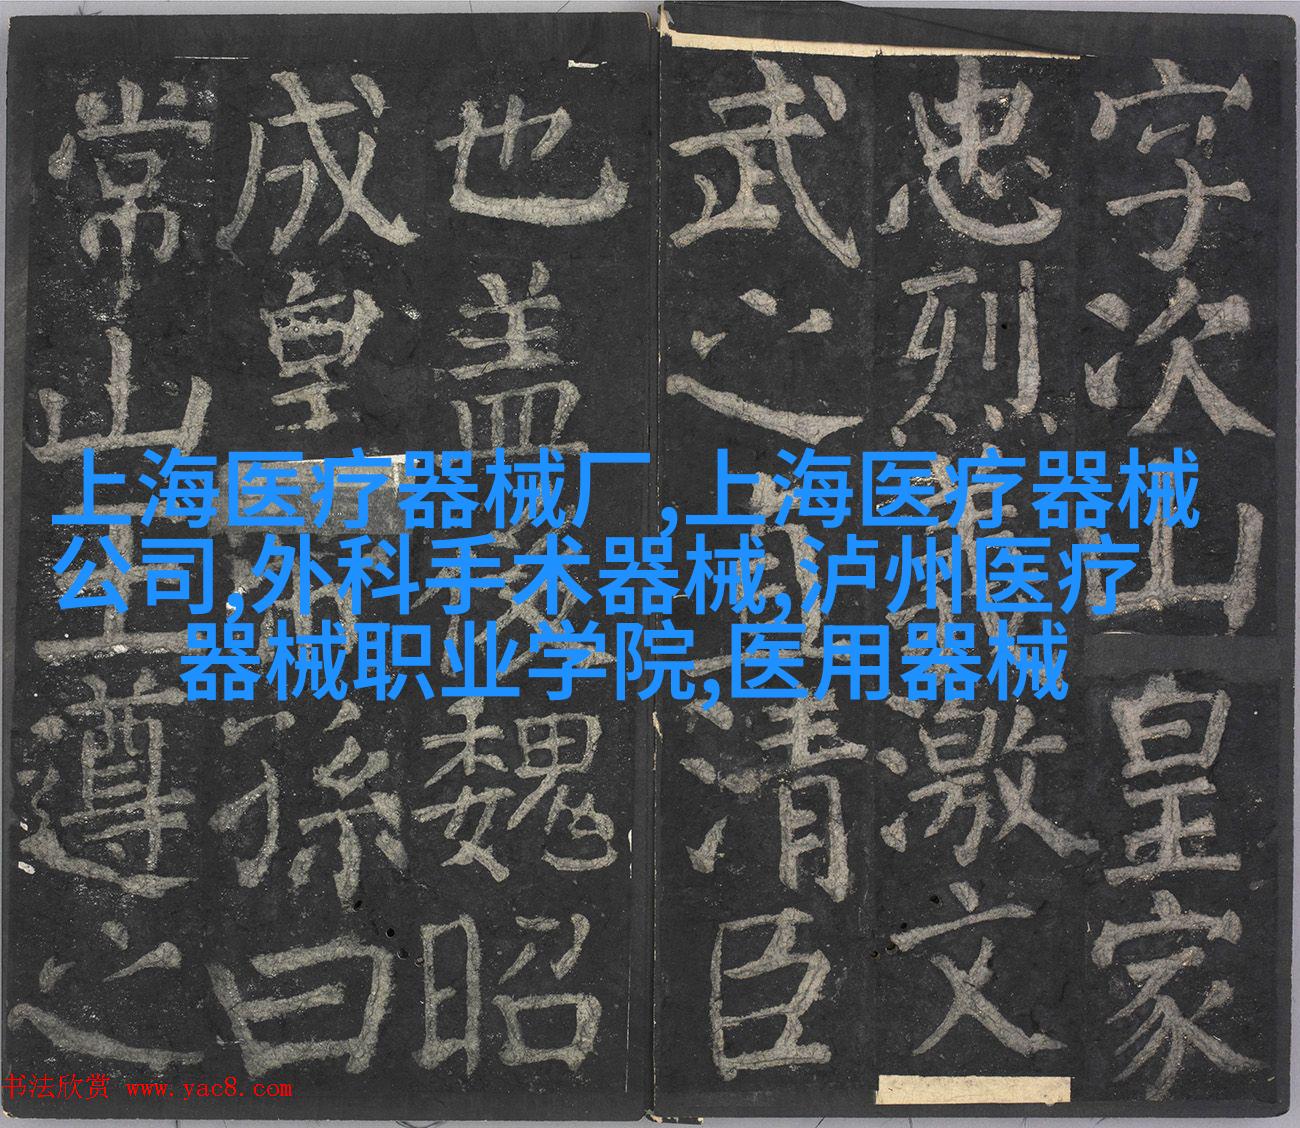 字次山皇家
忠烈激文
武之清臣
也盖魏昭
成皇孫曰
常山王遵之
上海医疗器械厂,上海医疗器械
公司,外科手术器械,泸州医疗
器械职业学院,医用器械
书法欣赏 www.yac8.com